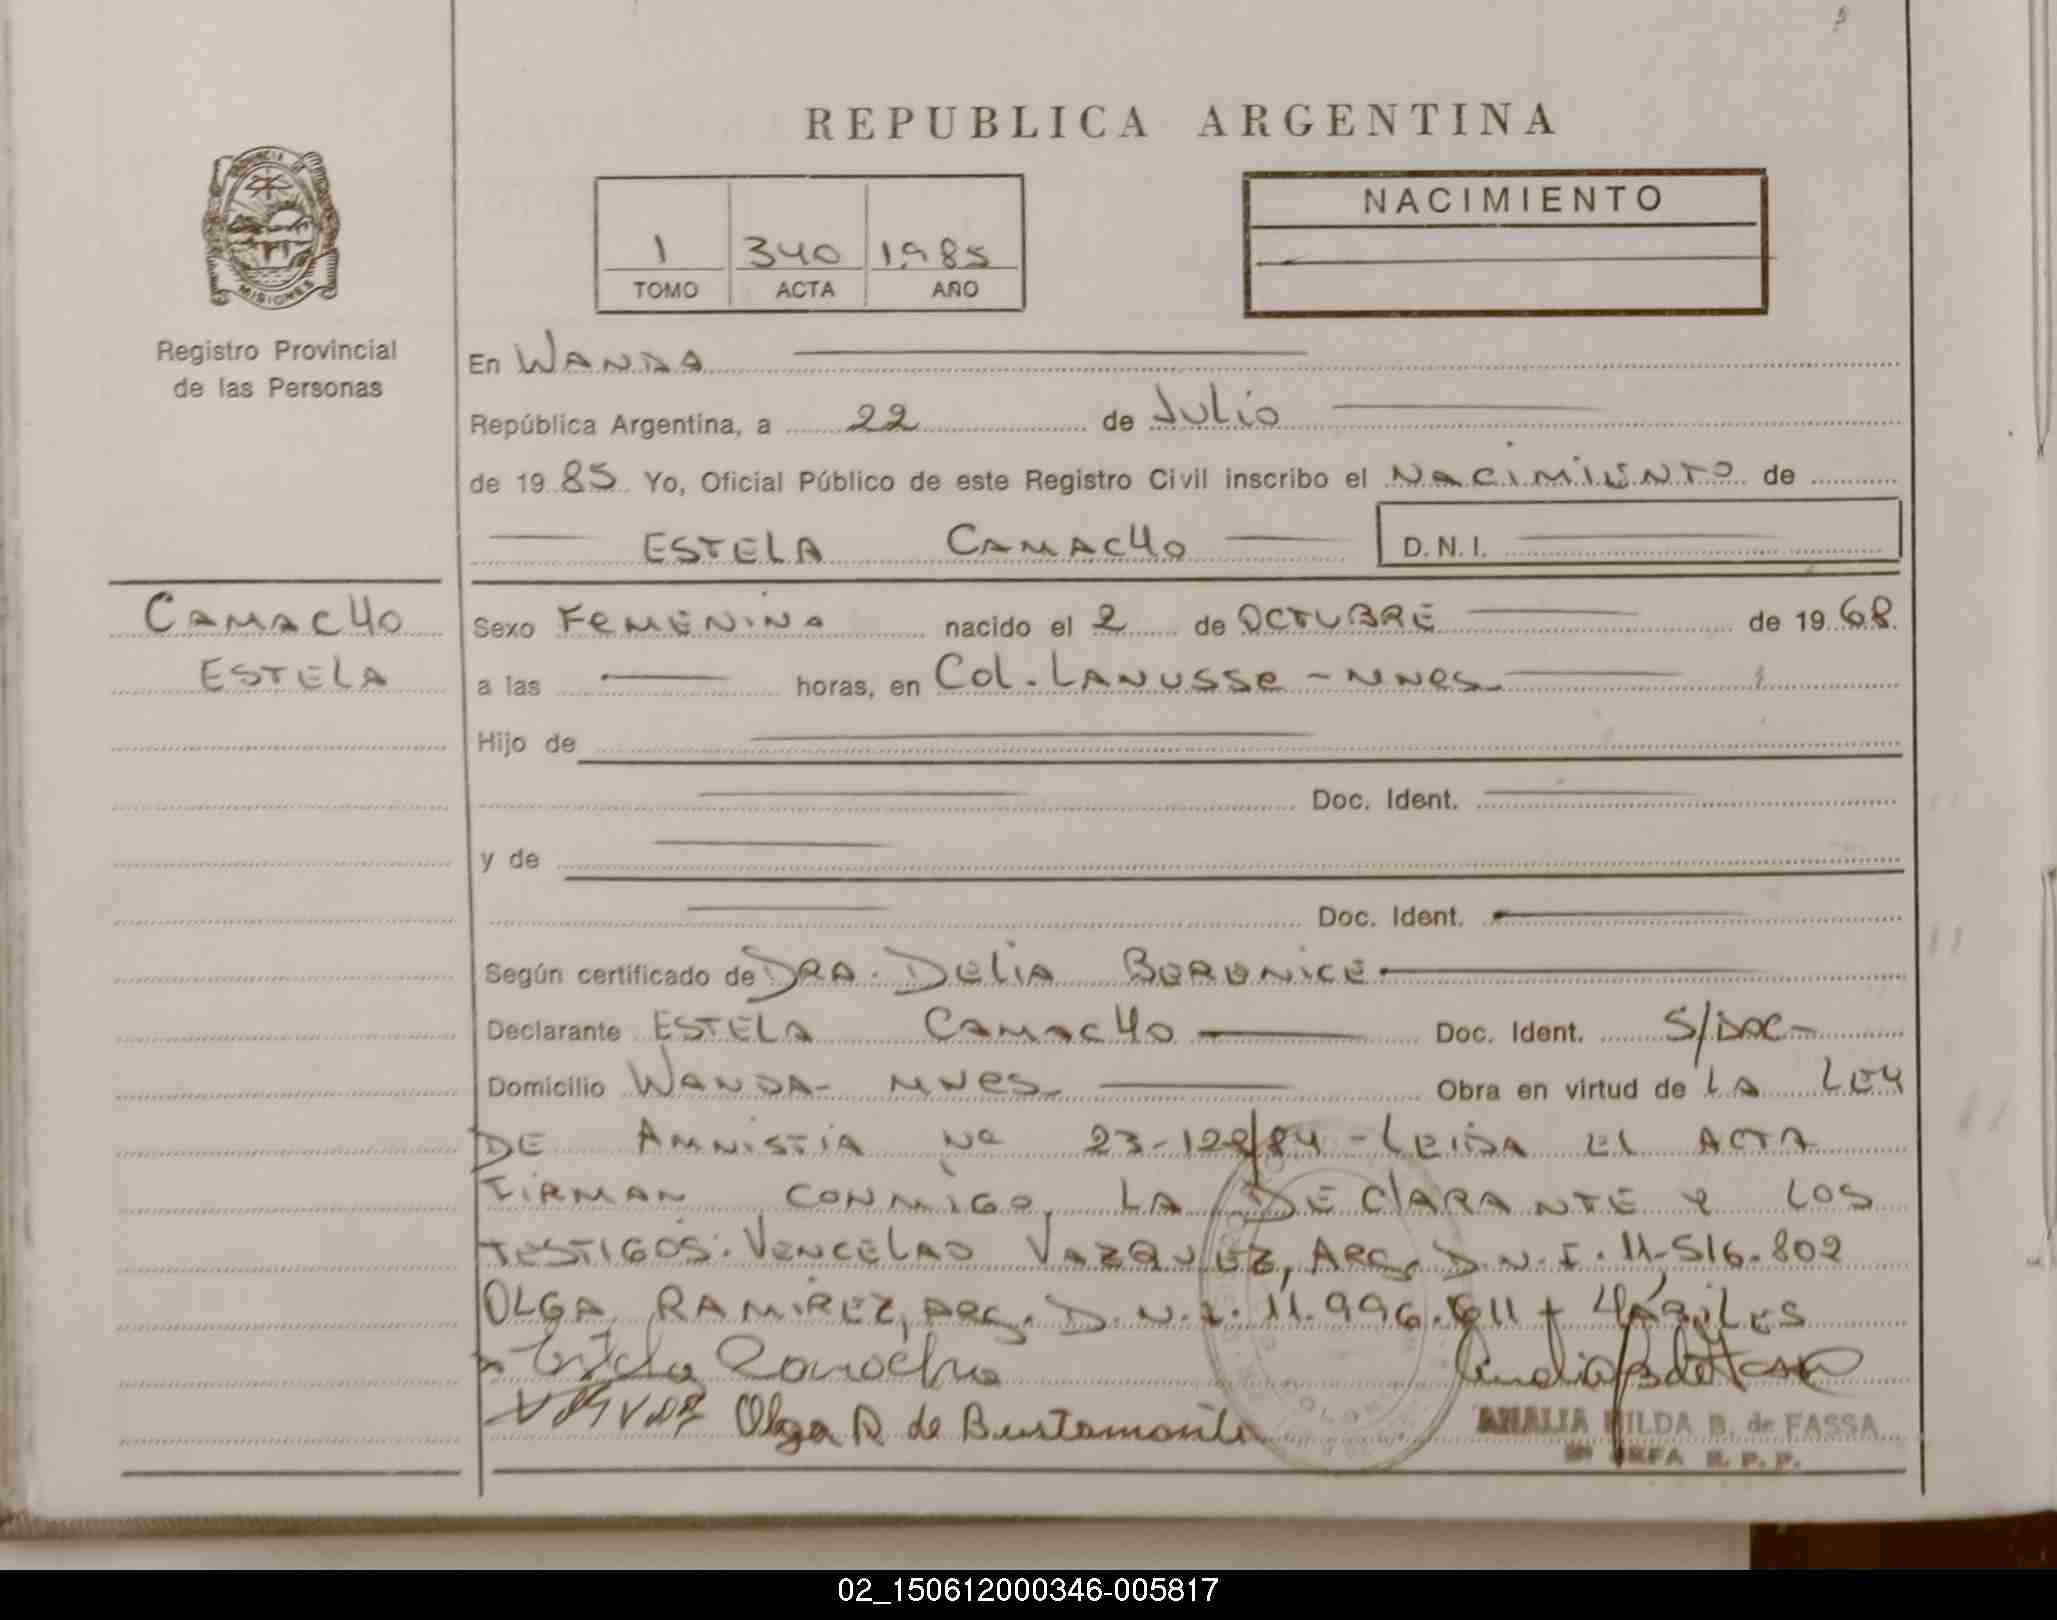 REPUBLICA ARGENTINA
PROVINCIA DE
MISIONES
Registro Provincial
de las Personas
1 340 1985
TOMO ACTA AÑO
NACIMIENTO
En WANDA
República Argentina, a 22 de Julio
de 1985 Yo, Oficial Público de este Registro Civil inscribo el NACIMIENTO de
ESTELA CAMACHO D.N.I.
CAMACHO
ESTELA
Sexo FEMENINO nacido el 2 de OCTUBRE de 1968.
a las horas, en Col. LANUSSE - MNES
Hijo de
Doc. Ident.
y de
Doc. Ident.
Según certificado de DRA. DELIA BERENICE
Declarante ESTELA CAMACHO Doc. Ident. S/DOC-
Domicilio WANDA- MNES Obra en virtud de LA LEY
DE AMNISTIA Nº 23-128/84 - LEIDA EL ACTA
FIRMAN CONMIGO, LA DECLARANTE Y LOS
TESTIGOS: VENCELAO VAZQUEZ, ARG. D.N.I. 11-516.802
OLGA RAMIREZ, ARG. D.N.I. 11.996. + HÁBILES
Camacho
Olga R de Bustamante
ANALIA HILDA B. de FASSA
JEFA R.P.P.
02_150612000346-005817